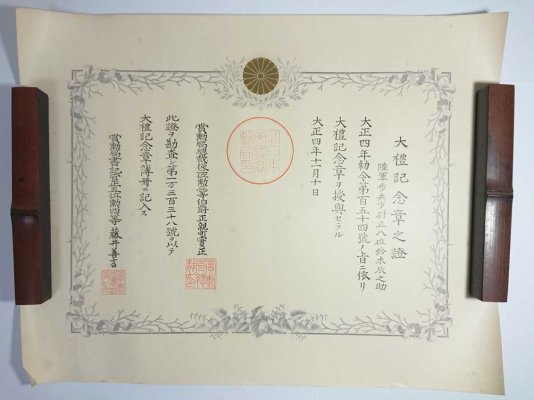 大禮記念章之證
陸軍歩兵少尉正八位鈴木辰之助
大正四年勅令第百五十四號ノ旨ニ依リ
大禮記念章ヲ授與セラル
大正四年十一月十日
賞勲局總裁從二位勲一等伯爵正親町實正
此證ヲ勘査シ第一万三百三十八號ヲ以テ
大禮記念章簿冊ニ記入ス
賞勲局書記官正五位勲四等藤井善言